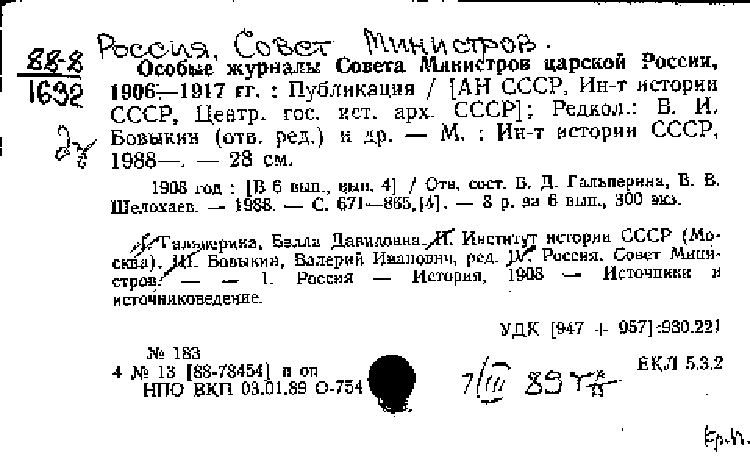 Россия. Совет Министров.
88-8
1692
Особые журналы Совета Министров царской России,
1906—1917 гг. : Публикация / [АН СССР, Ин-т истории
СССР, Центр. гос. ист. арх. СССР]; Редкол.: В. И.
Бовыкин (отв. ред.) и др. — М. : Ин-т истории СССР,
1988—. — 28 см.
1908 год : [В 6 вып., вып. 4] / Отв. сост. Б. Д. Гальперина, В. В.
Шелохаев. — 1988. — С. 671—865,[4]. — 8 р. за 6 вып., 300 экз.
I. Гальперина, Белла Давидовна. II. Институт истории СССР (Мо-
сква). III. Бовыкин, Валерий Иванович, ред. IV. Россия. Совет Мини-
стров. — — 1. Россия — История, 1908 — Источники и
источниковедение.
УДК [947 + 957]:930.221
№ 183
4 № 13 [88-78454] п оп
НПО ВКП 03.01.89 О-754
ЕКЛ 5.3.2
7/III 89
Ер.п.